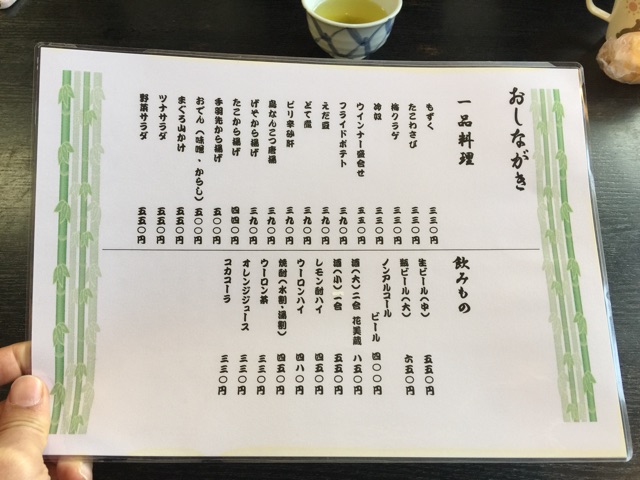 おしながき
一品料理
もずく 三三〇円
たこわさび 三三〇円
梅クラゲ 三三〇円
冷奴 三三〇円
ウインナー盛合せ 三三〇円
フライドポテト 三九〇円
えだ豆 三九〇円
どて煮 三九〇円
ピリ辛砂肝 三九〇円
鳥なんこつ唐揚 三九〇円
げそから揚げ 三九〇円
たこから揚げ 四四〇円
手羽先から揚げ 五〇〇円
おでん(味噌・からし) 五〇〇円
まぐろ山かけ 五五〇円
ツナサラダ 五五〇円
野菜サラダ 五五〇円
飲みもの
生ビール(中) 五五〇円
瓶ビール(大) 六五〇円
ノンアルコールビール 四〇〇円
酒(大)二合 花美蔵 八五〇円
酒(小)一合 五五〇円
レモン酎ハイ 四五〇円
ウーロンハイ 四八〇円
焼酎(水割・湯割) 四五〇円
ウーロン茶 三三〇円
オレンジジュース 三三〇円
コカコーラ 三三〇円